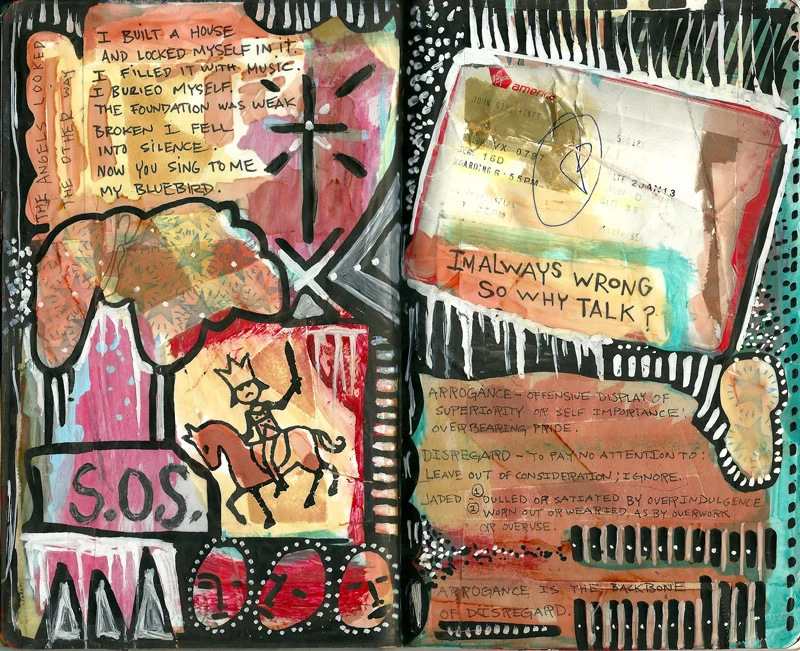 THE ANGELS LOOKED
THE OTHER WAY
I BUILT A HOUSE
AND LOCKED MYSELF IN IT.
I FILLED IT WITH MUSIC.
I BURIED MYSELF.
THE FOUNDATION WAS WEAK
BROKEN I FELL
INTO SILENCE.
NOW YOU SING TO ME
MY BLUEBIRD.
S.O.S.
Virgin america
JOHN
VX 0797
16D
BOARDING 6:55PM
2JAN13
I'M ALWAYS WRONG
SO WHY TALK?
ARROGANCE - OFFENSIVE DISPLAY OF
SUPERIORITY OR SELF IMPORTANCE;
OVERBEARING PRIDE.
DISREGARD - TO PAY NO ATTENTION TO:
LEAVE OUT OF CONSIDERATION; IGNORE.
JADED - ① DULLED OR SATIATED BY OVERINDULGENCE
② WORN OUT OR WEARIED, AS BY OVERWORK
OR OVERUSE.
ARROGANCE IS THE BACKBONE
OF DISREGARD.